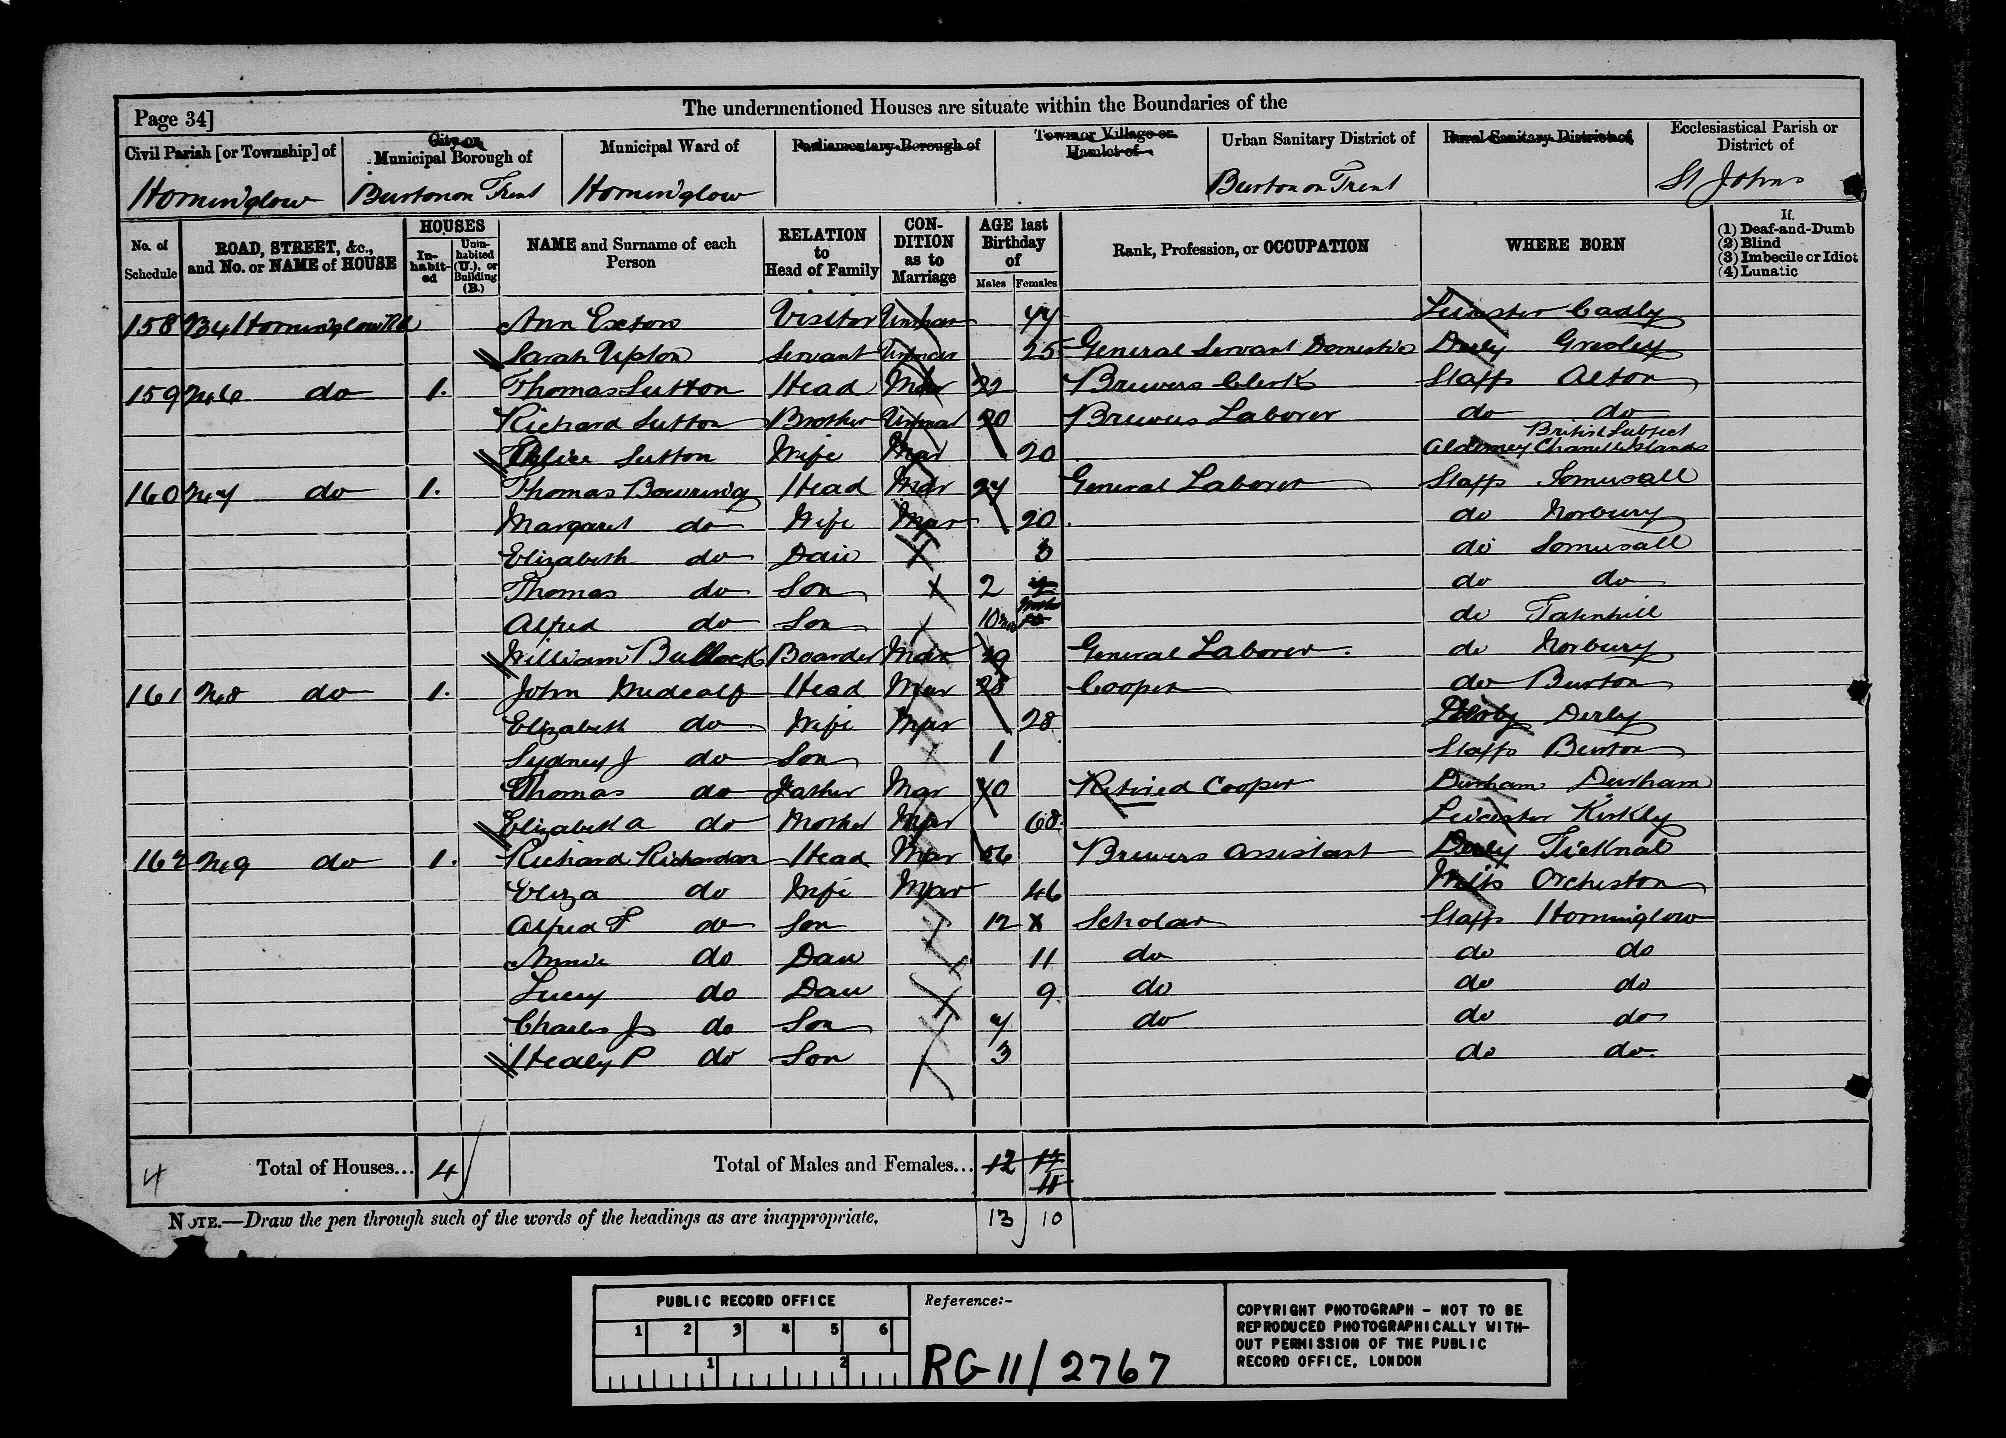 The undermentioned Houses are situate within the Boundaries of the
Page 34]
Civil Parish [or Township] of
City or
Municipal Borough of
Municipal Ward of
Parliamentary Borough of
Town or Village or
Hamlet of
Urban Sanitary District of
Rural Sanitary District of
Ecclesiastical Parish or
District of
Horninglow
Burton on Trent
Horninglow
Burton on Trent
St Johns
No. of
Schedule
ROAD, STREET, &c.,
and No. or NAME of HOUSE
HOUSES
In-
habit-
ed
Unin-
habited
(U.), or
Building
(B.)
NAME and Surname of each
Person
RELATION
to
Head of Family
CON-
DITION
as to
Marriage
AGE last
Birthday
of
Males
Females
Rank, Profession, or OCCUPATION
WHERE BORN
If
(1) Deaf-and-Dumb
(2) Blind
(3) Imbecile or Idiot
(4) Lunatic
158 Horninglow Rd Ann Exton Visitor Unmar 44
Sarah Upton Servant Unmar 25 General Servant Domestic Derby Gresley
159 No 6 do 1. Thomas Sutton Head Mar 22 Brewers Clerk Staffs Alton
Richard Sutton Brother Unmar 20 Brewers Laborer do do
British Subject
Alice Sutton Wife Mar 20 Alderney Channel Islands
160 No 7 do 1. Thomas Bowring Head Mar 27 General Laborer Staffs Somersall
Margaret do Wife Mar 20 do Norbury
Elizabeth do Dau 3 do Somersall
Thomas do Son 2 do do
Alfred do Son 10 mos do Tatenhill
William Bullock Boarder Mar 29 General Laborer. do Norbury
161 No 8 do 1. John Medcalf Head Mar 28 Cooper do Burton
Elizabeth do Wife Mar 28 Derby Derby
Sydney J do Son 1 Staffs Burton
Thomas do Father Mar 70 Retired Cooper Durham Durham
Elizabeth A do Mother Mar 68 Leicester Kirkby
162 No 9 do 1. Richard Richardson Head Mar 56 Brewers Assistant Derby Ticknal
Eliza do Wife Mar 46 Wilts Orcheston
Alfred F do Son 12 x Scholar Staffs Horninglow
Annie do Dau 11 do do do
Lucy do Dau 9 do do do
Charles J do Son 7 do do do
Healy P do Son 3 do do
4
Total of Houses... 4
Total of Males and Females... 12 17
11
NOTE.—Draw the pen through such of the words of the headings as are inappropriate.
13 10
PUBLIC RECORD OFFICE
1 2 3 4 5 6
1 2
Reference:-
RG 11 / 2767
COPYRIGHT PHOTOGRAPH - NOT TO BE
REPRODUCED PHOTOGRAPHICALLY WITH-
OUT PERMISSION OF THE PUBLIC
RECORD OFFICE, LONDON